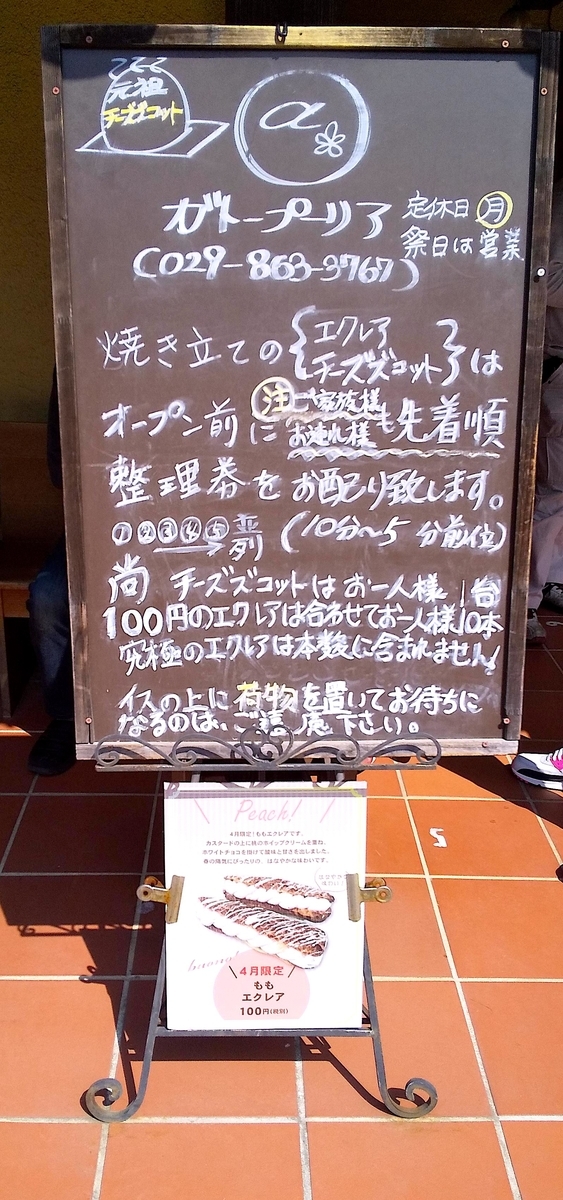 元祖
チーズズコット
α
ガトープーリア
定休日 月
祭日は営業
(029-863-3767)
焼き立ての{エクレア
チーズズコット}は
オープン前に 注 ご家族様
お連れ様 も先着順
整理券をお配り致します。
①②③④⑤ 列 (10分〜5分前位)
尚 チーズズコットはお一人様1台
100円のエクレアは合わせてお一人様10本
究極のエクレアは本数に含まれません!
イスの上に荷物を置いてお待ちに
なるのは、ご遠慮下さい。
Peach!
4月限定!ももエクレアです。
カスタードの上に桃のホイップクリームを重ね、
ホワイトチョコを掛けて酸味と甘さを出しました。
春の陽気にぴったりの、はなやかな味わいです。
はなやかな
味わい!
4月限定
もも
エクレア
100円(税別)
5